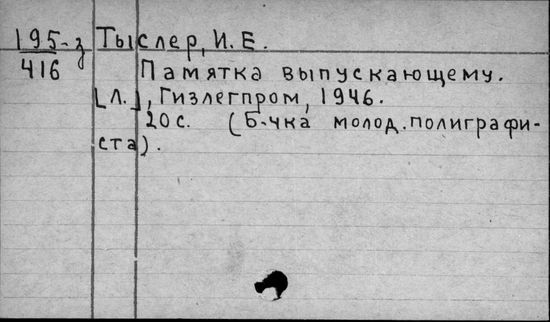 195-з Тыслер, И.Е.
416 Памятка выпускающему.
[Л.], Гизлегпром, 1946.
20с. (Б-чка молод.полиграфи-
ста).